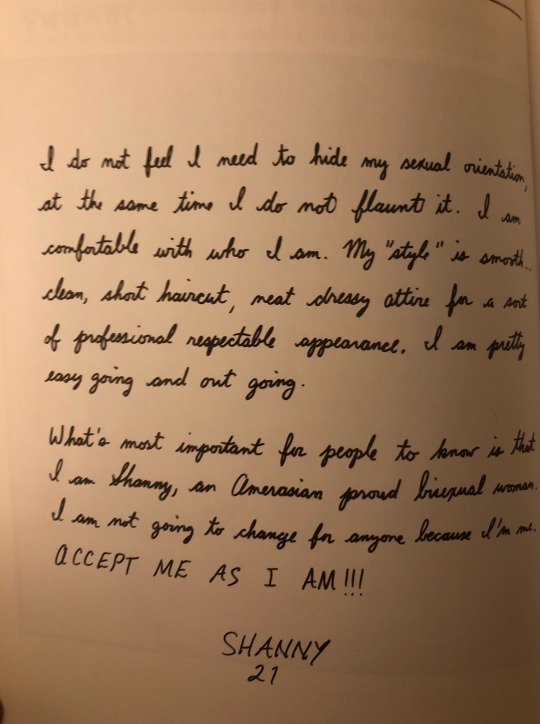 I do not feel I need to hide my sexual orientation,
at the same time I do not flaunt it. I am
comfortable with who I am. My "style" is smooth...
clean, short haircut, neat dressy attire for a sort
of professional respectable appearance. I am pretty
easy going and out going.
What's most important for people to know is that
I am Shanny, an Amerasian proud bisexual woman.
I am not going to change for anyone because I'm me.
ACCEPT ME AS I AM!!!
SHANNY
21